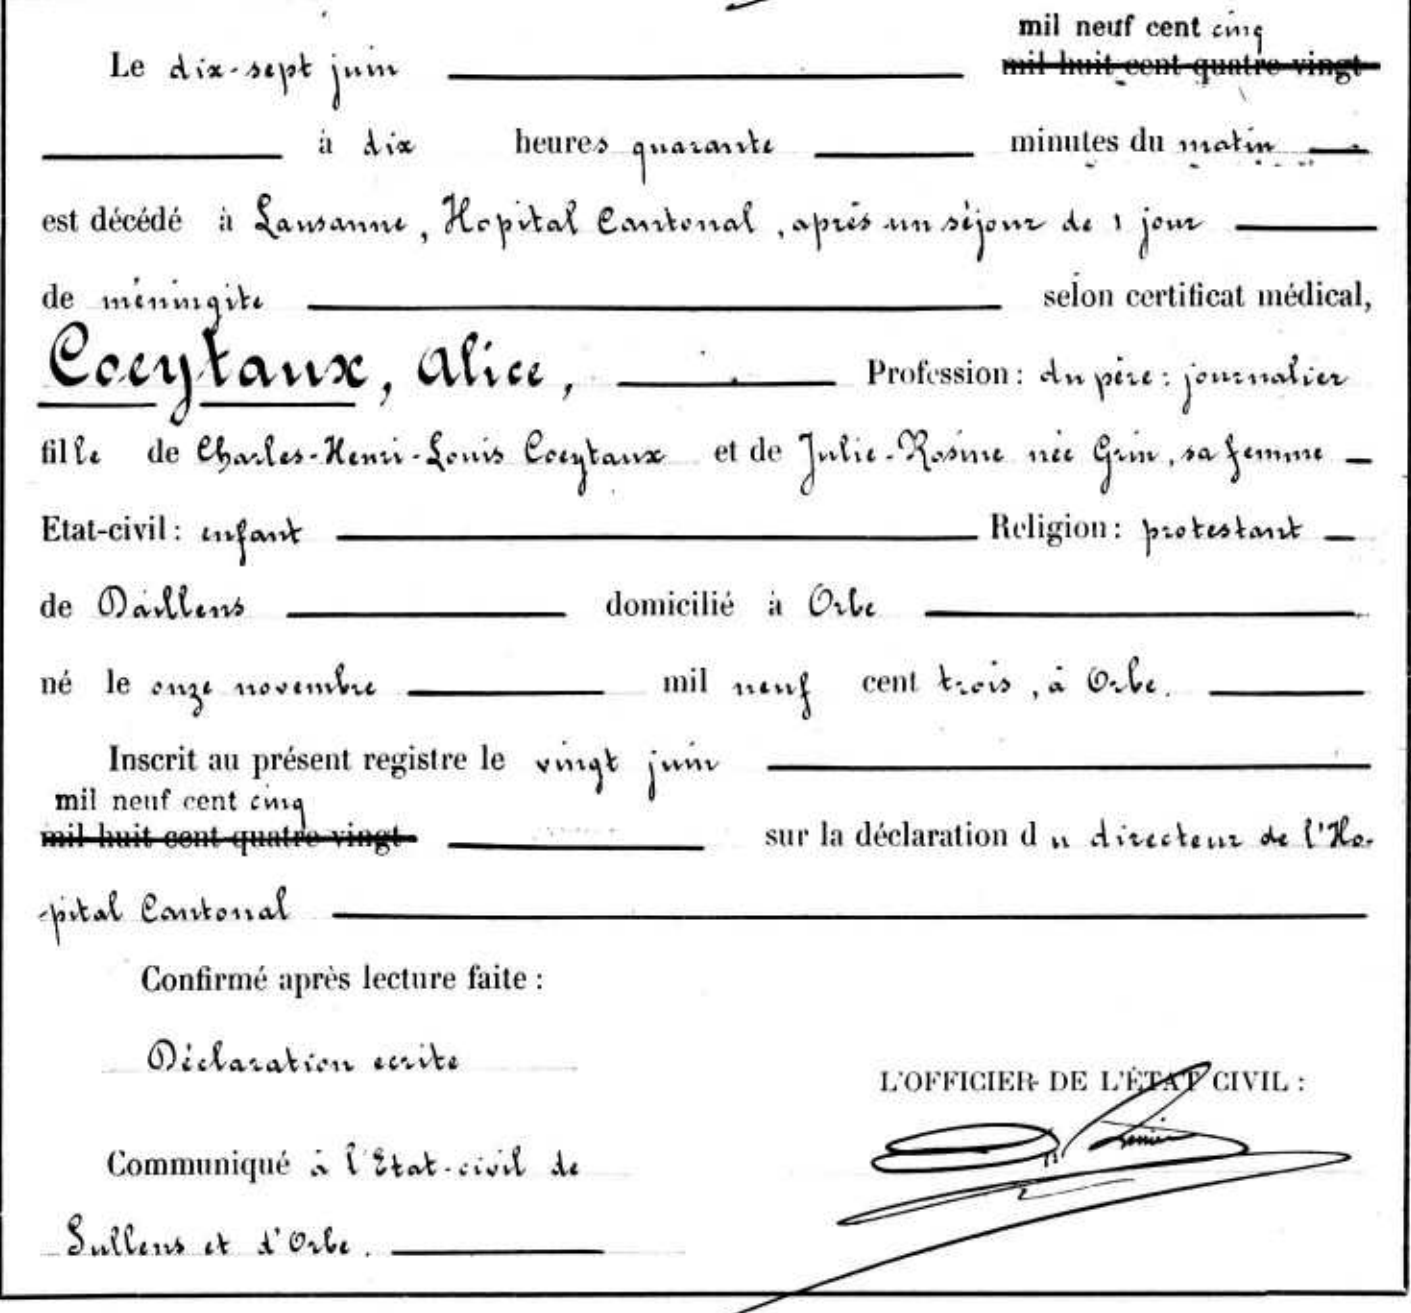 mil neuf cent cinq
Le dix-sept juin mil huit cent quatre-vingt
à dix heures quarante minutes du matin
est décédé à Lausanne, Hopital Cantonal, après un séjour de 1 jour
de méningite selon certificat médical,
Coeytaux, Alice, Profession : du père : journalier
fille de Charles-Henri-Louis Coeytaux et de Julie-Rosine née Grin, sa femme
Etat-civil : enfant Religion : protestant
de Daillens domicilié à Orbe
né le onze novembre mil neuf cent trois, à Orbe.
Inscrit au présent registre le vingt juin
mil neuf cent cinq
mil huit cent quatre-vingt sur la déclaration du directeur de l'Ho-
-pital Cantonal
Confirmé après lecture faite :
Déclaration ecrite
L'OFFICIER DE L'ÉTAT CIVIL :
Communiqué à l'Etat-civil de
Sullens et d'Orbe.